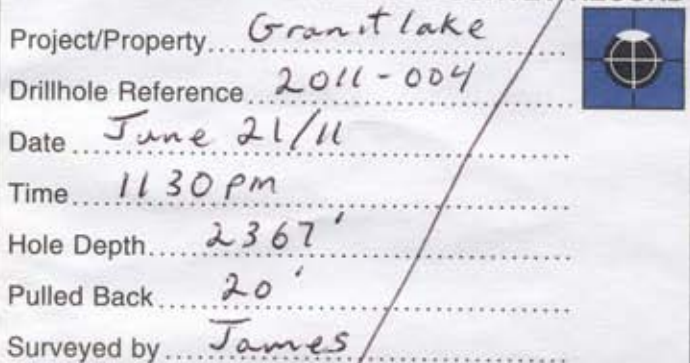 Project/Property Granitlake
Drillhole Reference 2011-004
Date June 21/11
Time 11 30 pm
Hole Depth 2367'
Pulled Back 20'
Surveyed by James